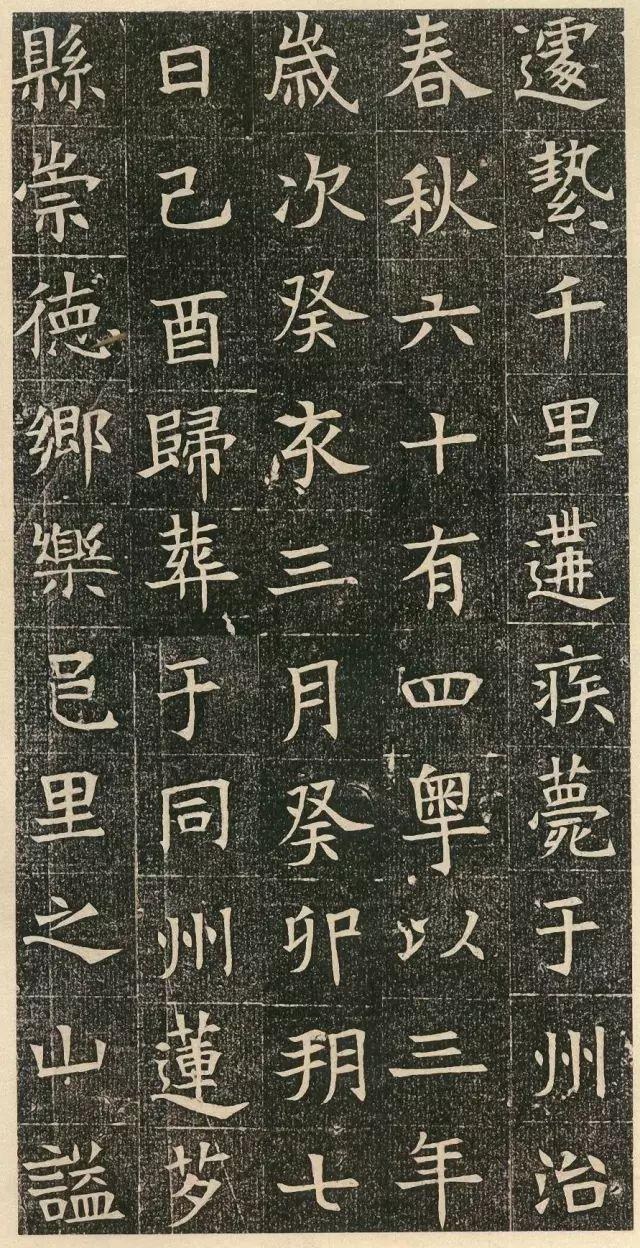 遽縶千里遘疾薨于州治
春秋六十有四粤以三年
歲次癸亥三月癸卯朔七
日己酉歸葬于同州蓮芍
縣崇德鄉樂邑里之山謚